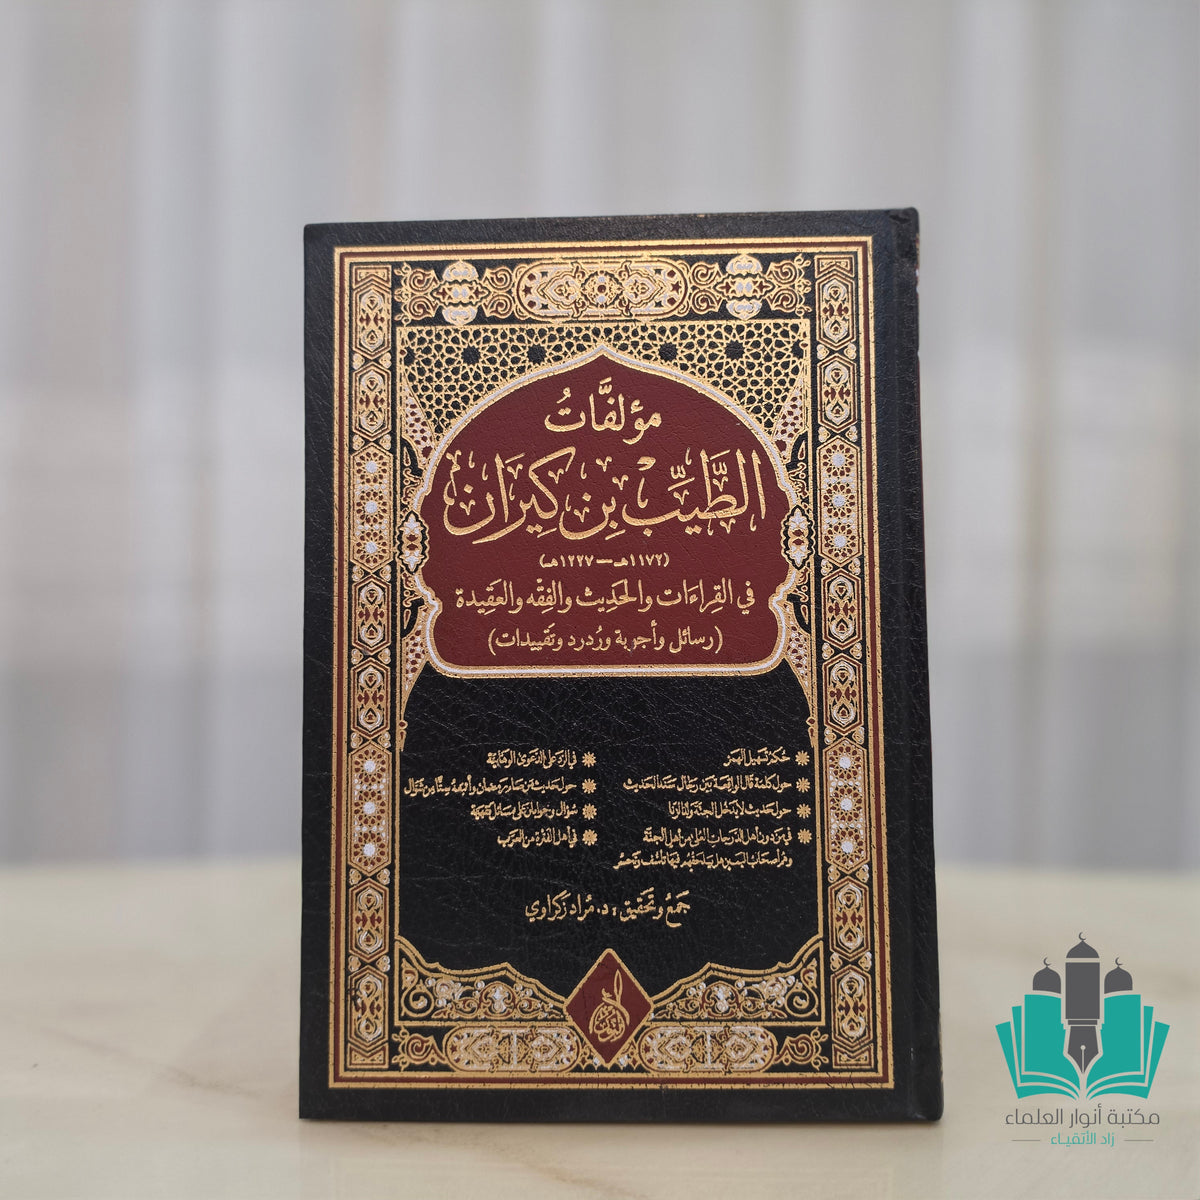 مؤلفَّاتُ
الطَّيِّب بْن كِيرَان
(١١٧٢هـ – ١٢٢٧هـ)
في القِراءَات والحَدِيث والفِقْه والعَقِيدة
(رسائل وأجوبة ورُدرد وتَقييدات)
❋ حُكم تسهيل الهمز
❋ حول كلمة قال الواقعة بين رجال سند الحديث
❋ حول حديث لا يدخل الجنة ولد الزنا
❋ فيمن دون أهل الدرجات العلى من أهل الجنَّة
❋ في الرد على الدعوى الوهابية
❋ حول حديث من صام رمضان وأتبعه ستًّا من شوَّال
❋ سؤال وجوابان على مسائل فقهية
❋ في أهل الفترة من العرب
جَمعُ وتحقيق: د. مُراد زكراوي
مكتبة أنوار العلماء
زاد الأتقياء